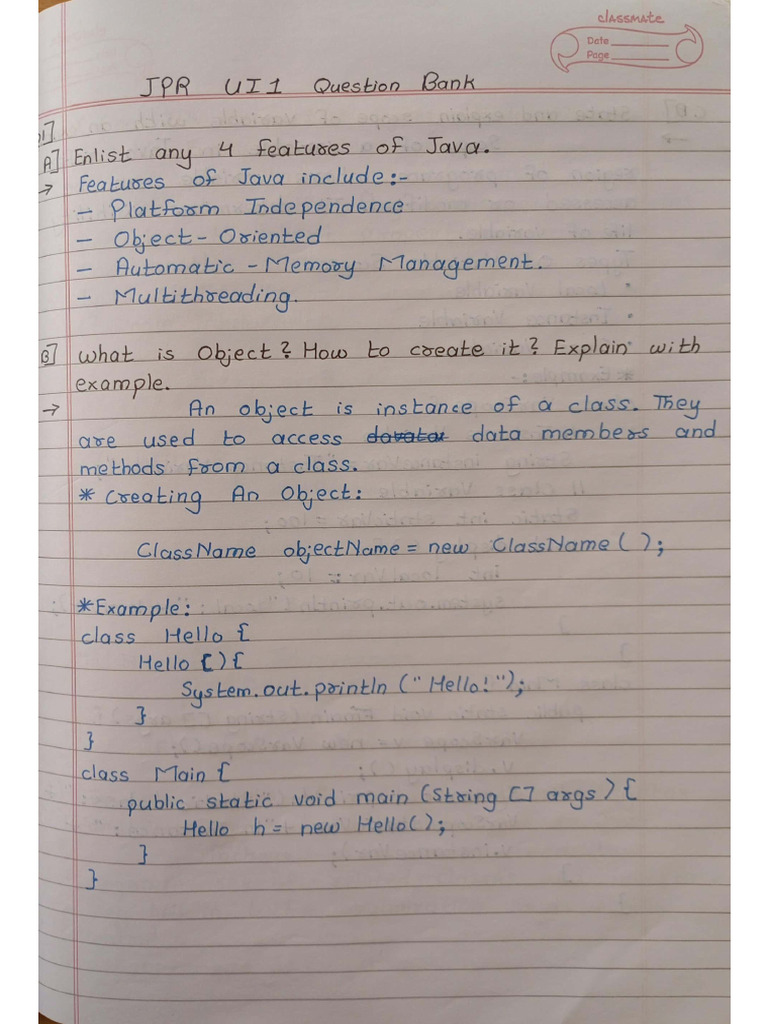 classmate
Date
Page
JPR UI1 Question Bank
A] Enlist any 4 features of Java.
→ Features of Java include:-
- Platform Independence
- Object-Oriented
- Automatic-Memory Management.
- Multithreading.
B] What is Object? How to create it? Explain with
example.
→ An object is instance of a class. They
are used to access data members and
methods from a class.
* Creating An Object:
ClassName objectName = new ClassName();
*Example:
class Hello {
Hello (){
System.out.println ("Hello!");
}
}
class Main {
public static void main (String [] args) {
Hello h = new Hello();
}
}